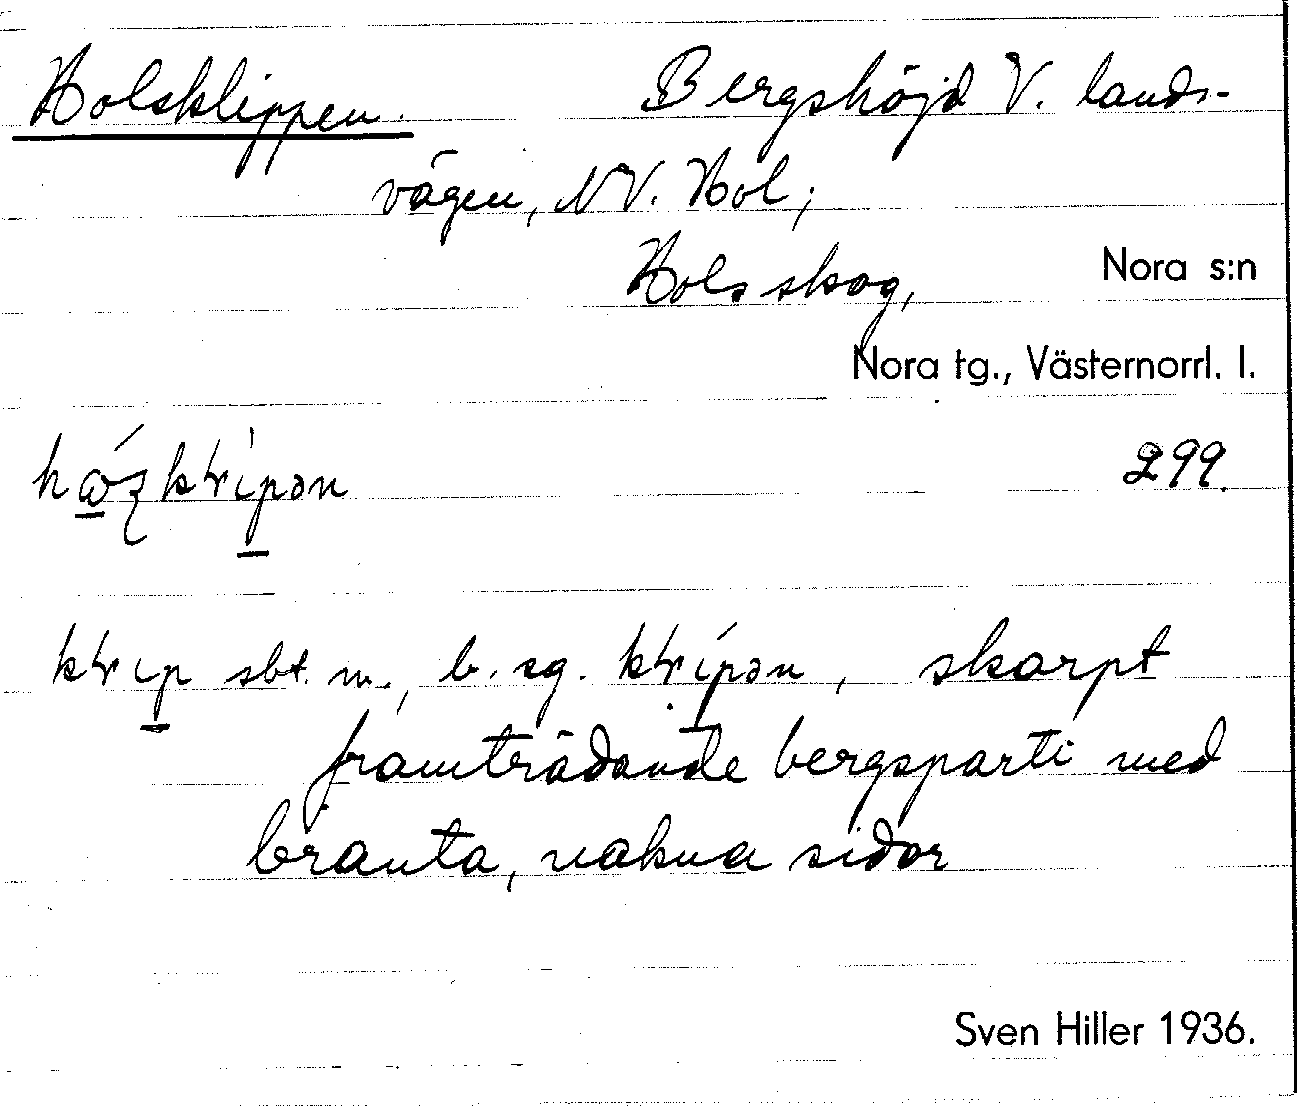 Holsklippen. Bergshöjd V. lands-
vägen, NV. Hol;
Hols skog, Nora s:n
Nora tg., Västernorrl. l.
299.
sbt. m., b. sg. , skarpt
framträdande bergsparti med
branta, nakna sidor
Sven Hiller 1936.